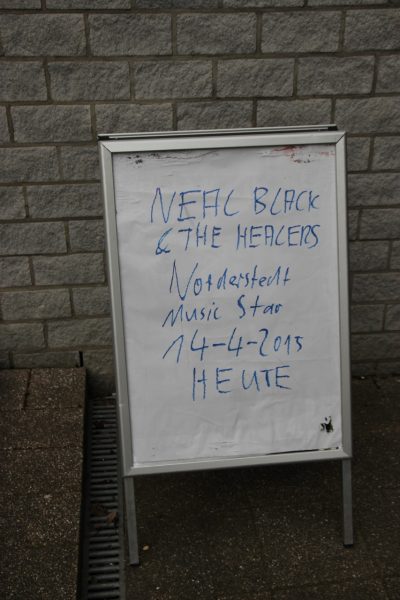 NEAL BLACK
& THE HEALERS
Norderstedt
Music Star
14-4-2015
HEUTE